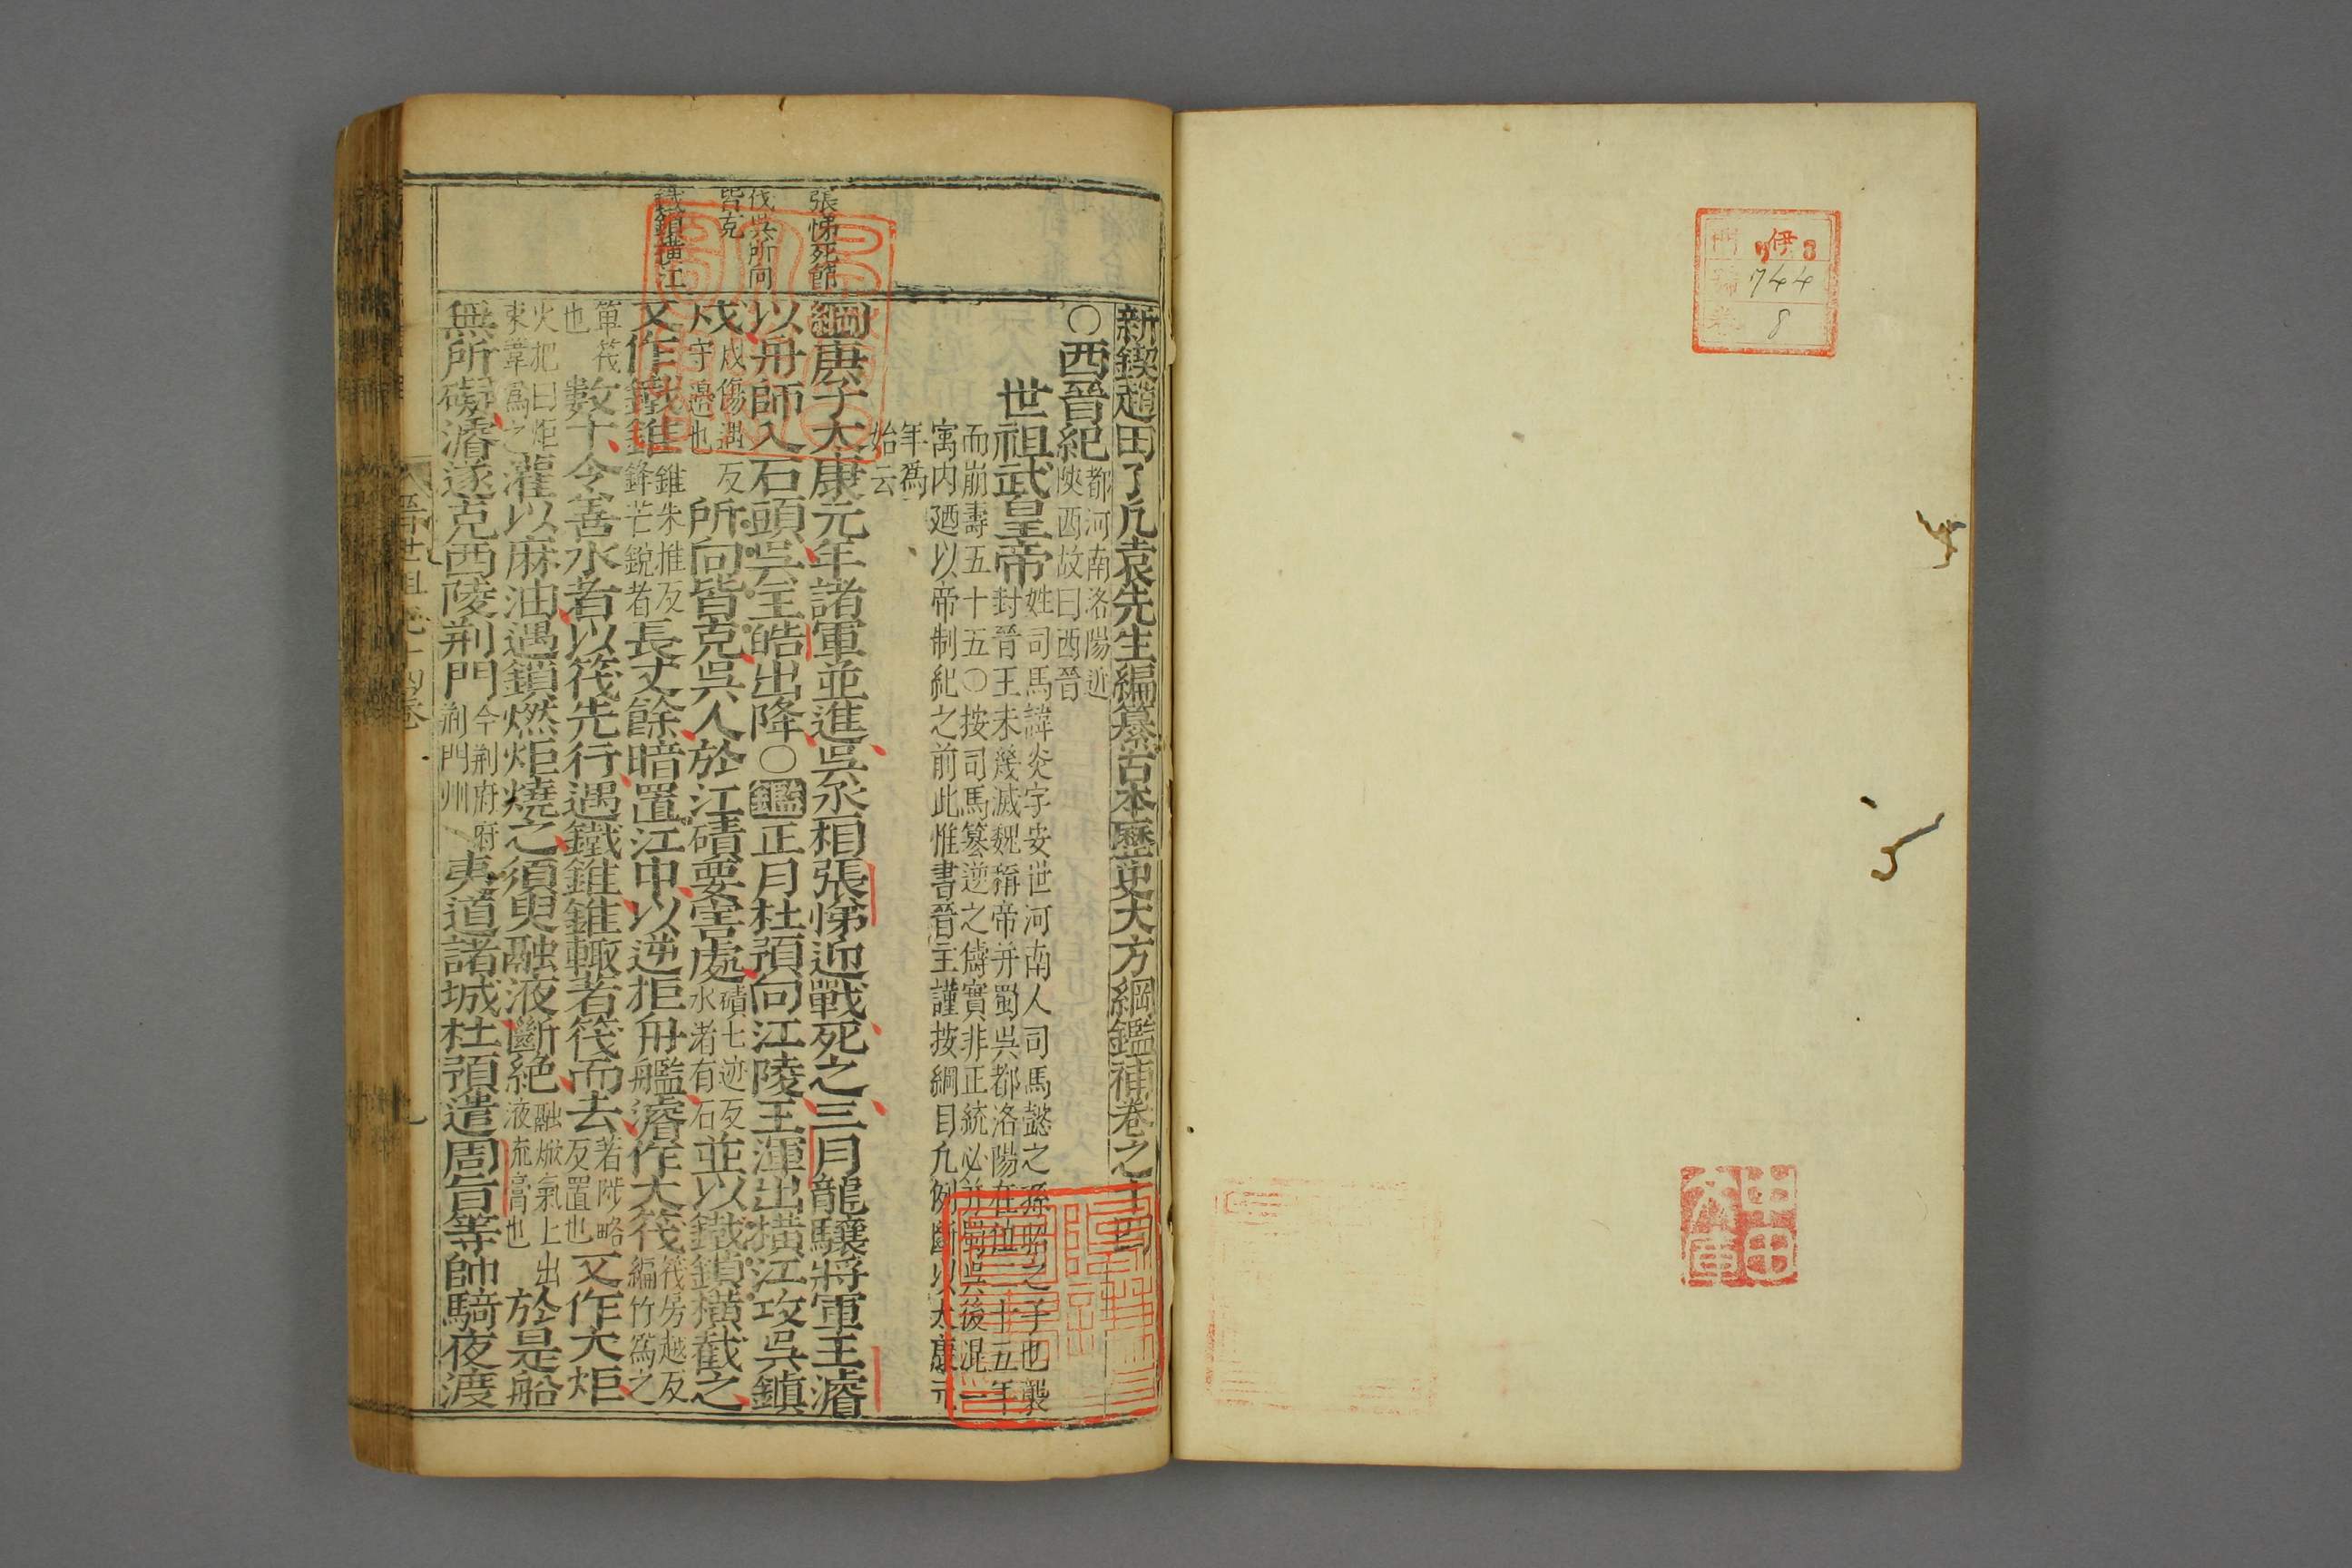 門 伊 8
號 744
卷 8
新鍥趙田了凡袁先生編纂古本歷史大方綱鑑補卷之十四
○西晉紀
都河南洛陽近
陝西故曰西晉
世祖武皇帝
姓司馬諱炎字安世河南人司馬懿之孫昭之子也襲
封晉王未幾滅魏稱帝并蜀吳都洛陽在位二十五年
而崩壽五十五○按司馬篡逆之儔實非正統必并蜀吳後混一
寓内廼以帝制紀之前此惟書晉主謹按綱目凡例斷以太康元
年爲
始云
張悌死節
伐吳所向
皆克
鐵鎖橫江
綱庚子太康元年諸軍並進吳丞相張悌迎戰死之三月龍驤將軍王濬
以舟師入石頭吳主皓出降○鑑正月杜預向江陵王渾出橫江攻吳鎮
戍 戍傷遇反戍守邊也 所向皆克吳人於江磧要害處 磧七迹反水渚有石 並以鐵鎖橫截之
又作鐵錐 錐朱推反鋒芒銳者 長丈餘暗置江中以逆拒舟艦濬作大筏 筏房越反編竹爲之
箄筏也 數十令善水者以筏先行遇鐵錐錐輒著筏而去 若陟略反置也 又作大炬
火把曰炬束葦爲之 灌以麻油遇鎖燃炬燒之須臾融液斷絕 融焮氣上出液流膏也 於是船
無所礙濬遂克西陵荆門 今荆府府荆門州 夷道諸城杜預遣周旨等帥騎夜渡
晉世祖 十四卷